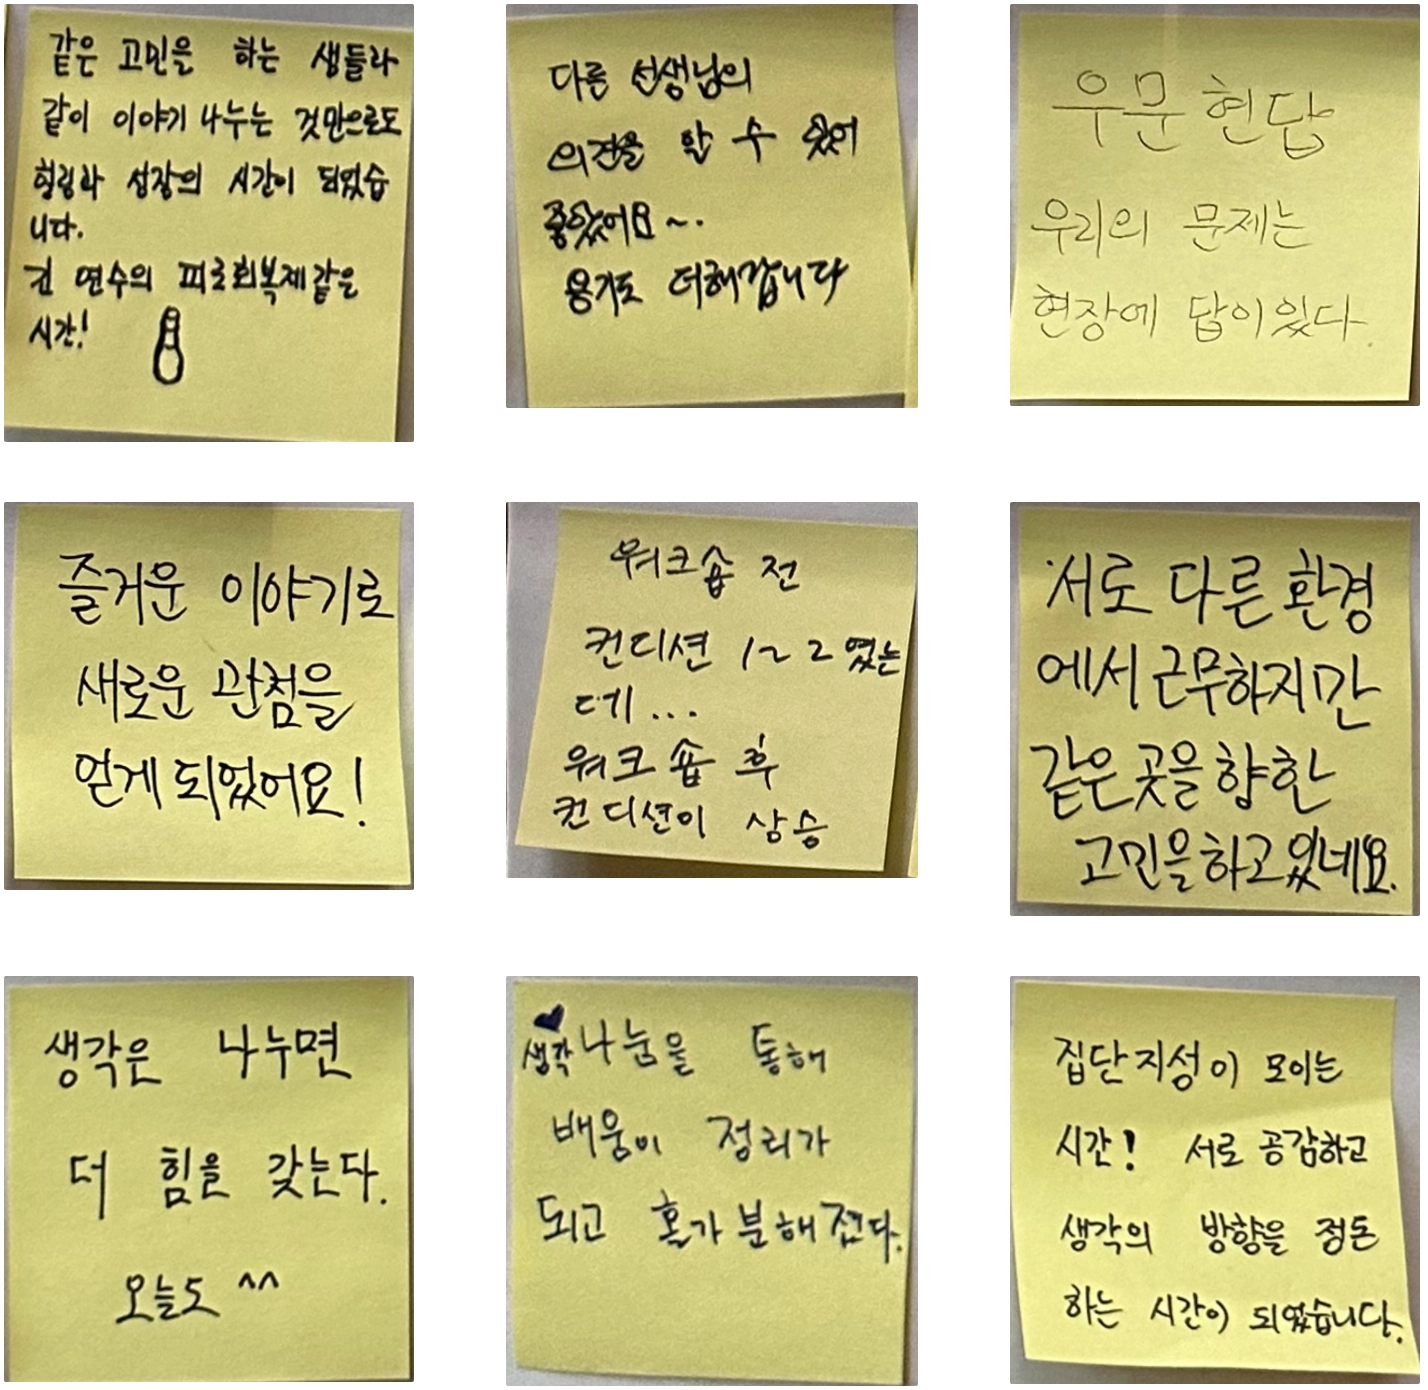 같은 고민을 하는 샘들과
같이 이야기 나누는 것만으로도
힐링과 성장의 시간이 되었습
니다.
긴 연수의 피로회복제같은
시간!
다른 선생님의
의견을 알 수 있어
좋았어요~.
용기도 더해갑니다
우문현답
우리의 문제는
현장에 답이있다.
즐거운 이야기로
새로운 관점을
얻게 되었어요!
워크숍 전
컨디션 1~2였는
데...
워크숍 후
컨디션이 상승
서로 다른 환경
에서 근무하지만
같은 곳을 향한
고민을하고있네요.
생각은 나누면
더 힘을 갖는다.
오늘도 ^^
생각나눔을 통해
배움이 정리가
되고 홀가분해졌다.
집단지성이 모이는
시간! 서로 공감하고
생각의 방향을 정돈
하는 시간이 되었습니다.